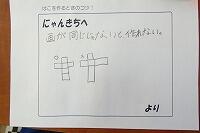 はこを作るときのコツ！
にゃんきちへ
面が同じじゃないと、作れない。
○
×
より